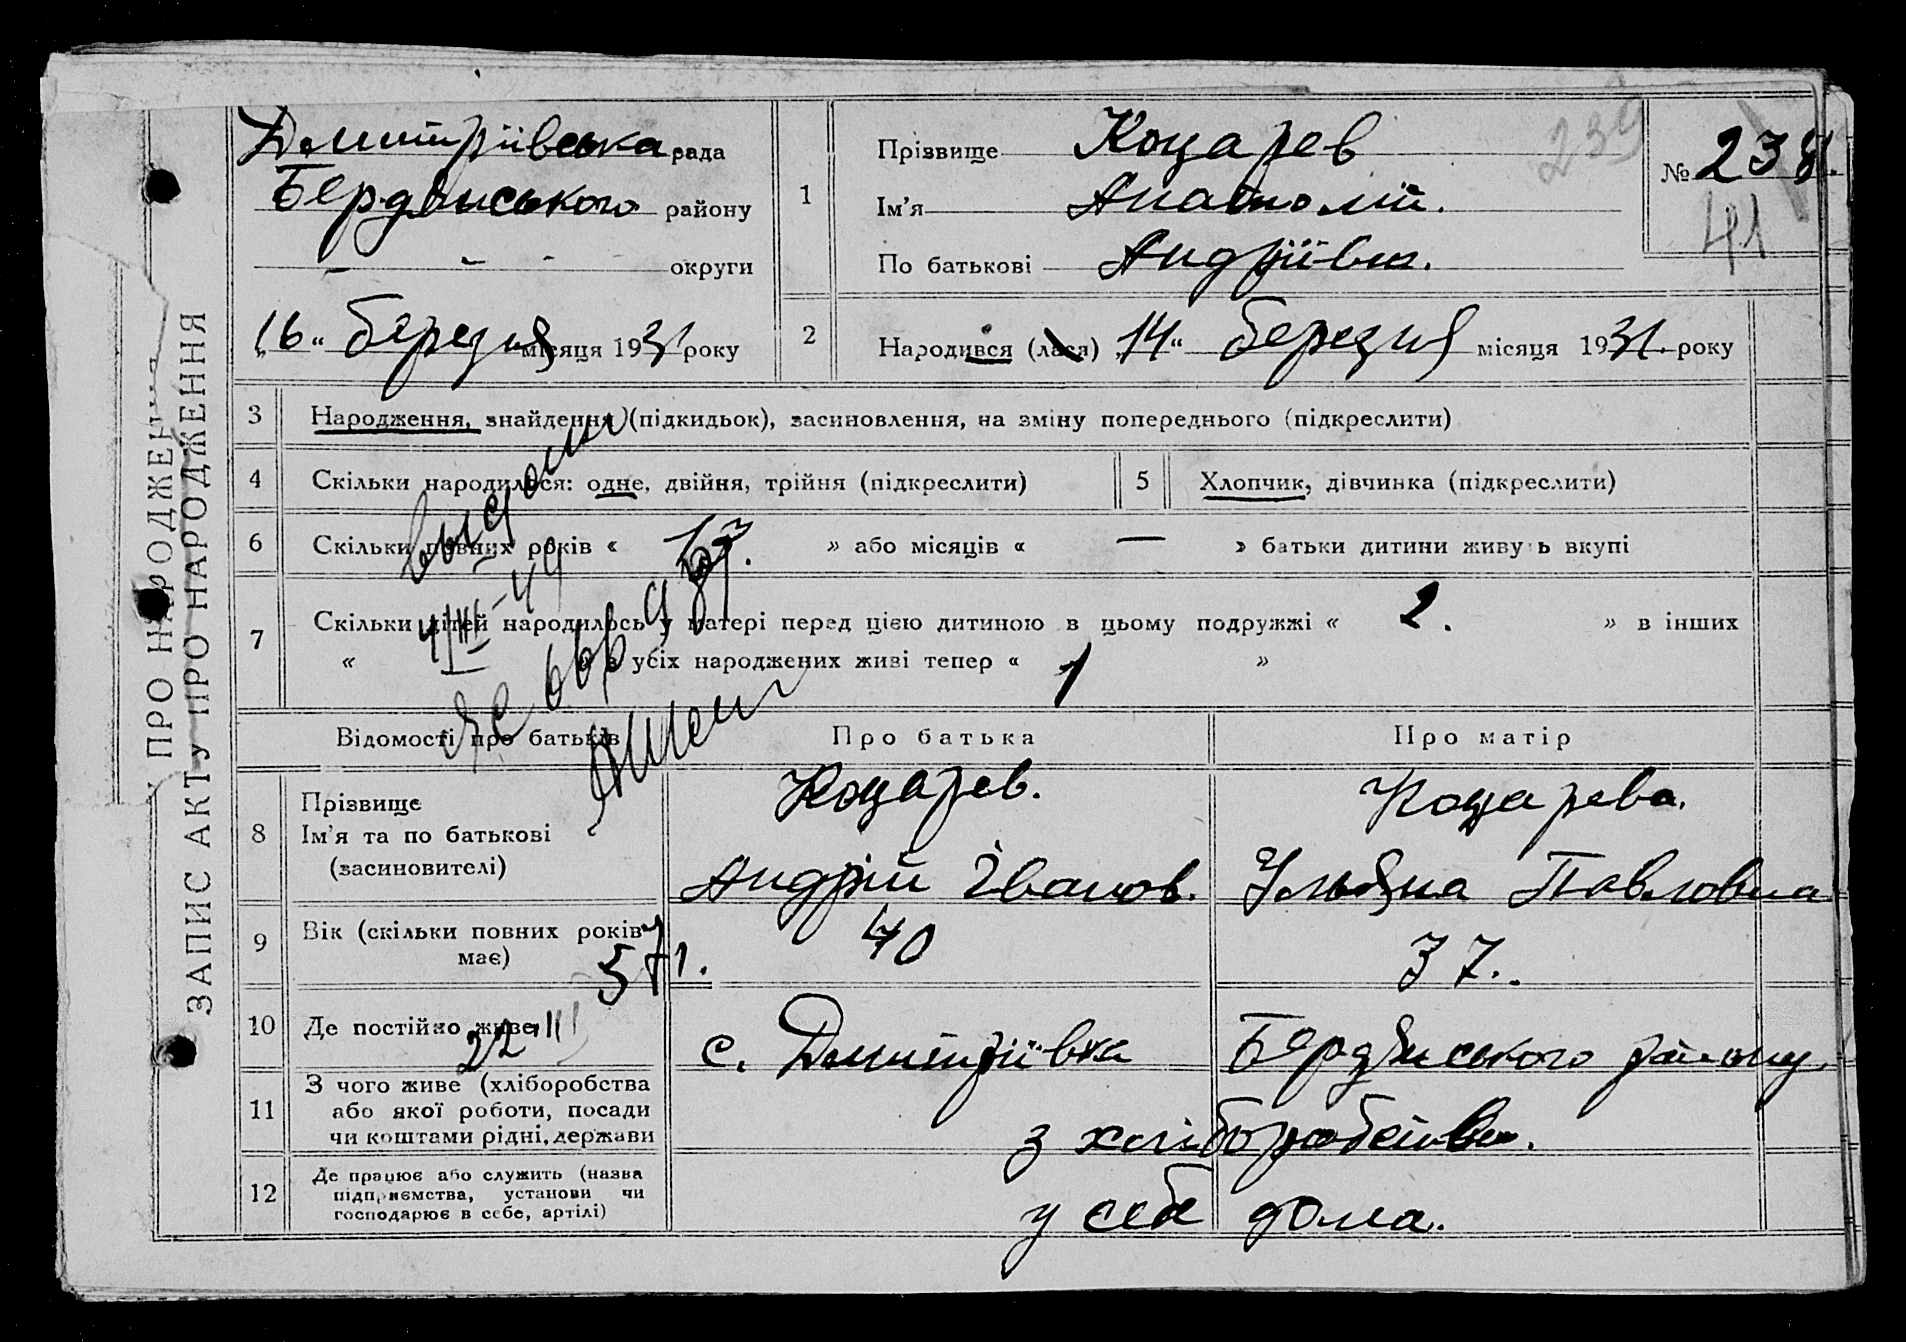 ЗАПИС АКТУ ПРО НАРОДЖЕННЯ
ПРО НАРОДЖЕННЯ
Дмитріївська рада
Бердянського району
округи
„16“ березня місяця 1931 року
1
Прізвище Коцарев
Ім'я Анатолій.
По батькові Андріївич.
239
№ 238.
41
2
Народився (лася) „14“ березня місяця 1931 року
3 Народження, знайдення (підкидьок), засиновлення, на зміну попереднього (підкреслити)
4 Скільки народилося: одне, двійня, трійня (підкреслити)
5 Хлопчик, дівчинка (підкреслити)
6 Скільки повних років « » або місяців « — » батьки дитини живуть вкупі
7 Скільки дітей народилось у матері перед цією дитиною в цьому подружжі « 2. » в інших
« » з усіх народжених живі тепер « 1 »
Відомості про батьків
Про батька
Про матір
8 Прізвище
Ім'я та по батькові
(засиновителі)
Коцарев.
Андрій Іванов.
Коцарева.
Ульяна Павловна
9 Вік (скільки повних років має)
40
37.
57 г.
22 III
10 Де постійно живе
с. Дмитріївка Бердянського району
11 З чого живе (хліборобства
або якої роботи, посади
чи коштами рідні, держави
з хліборобства.
12 Де працює або служить (назва
підприємства, установи чи
господарює в себе, артілі)
у себе дома.